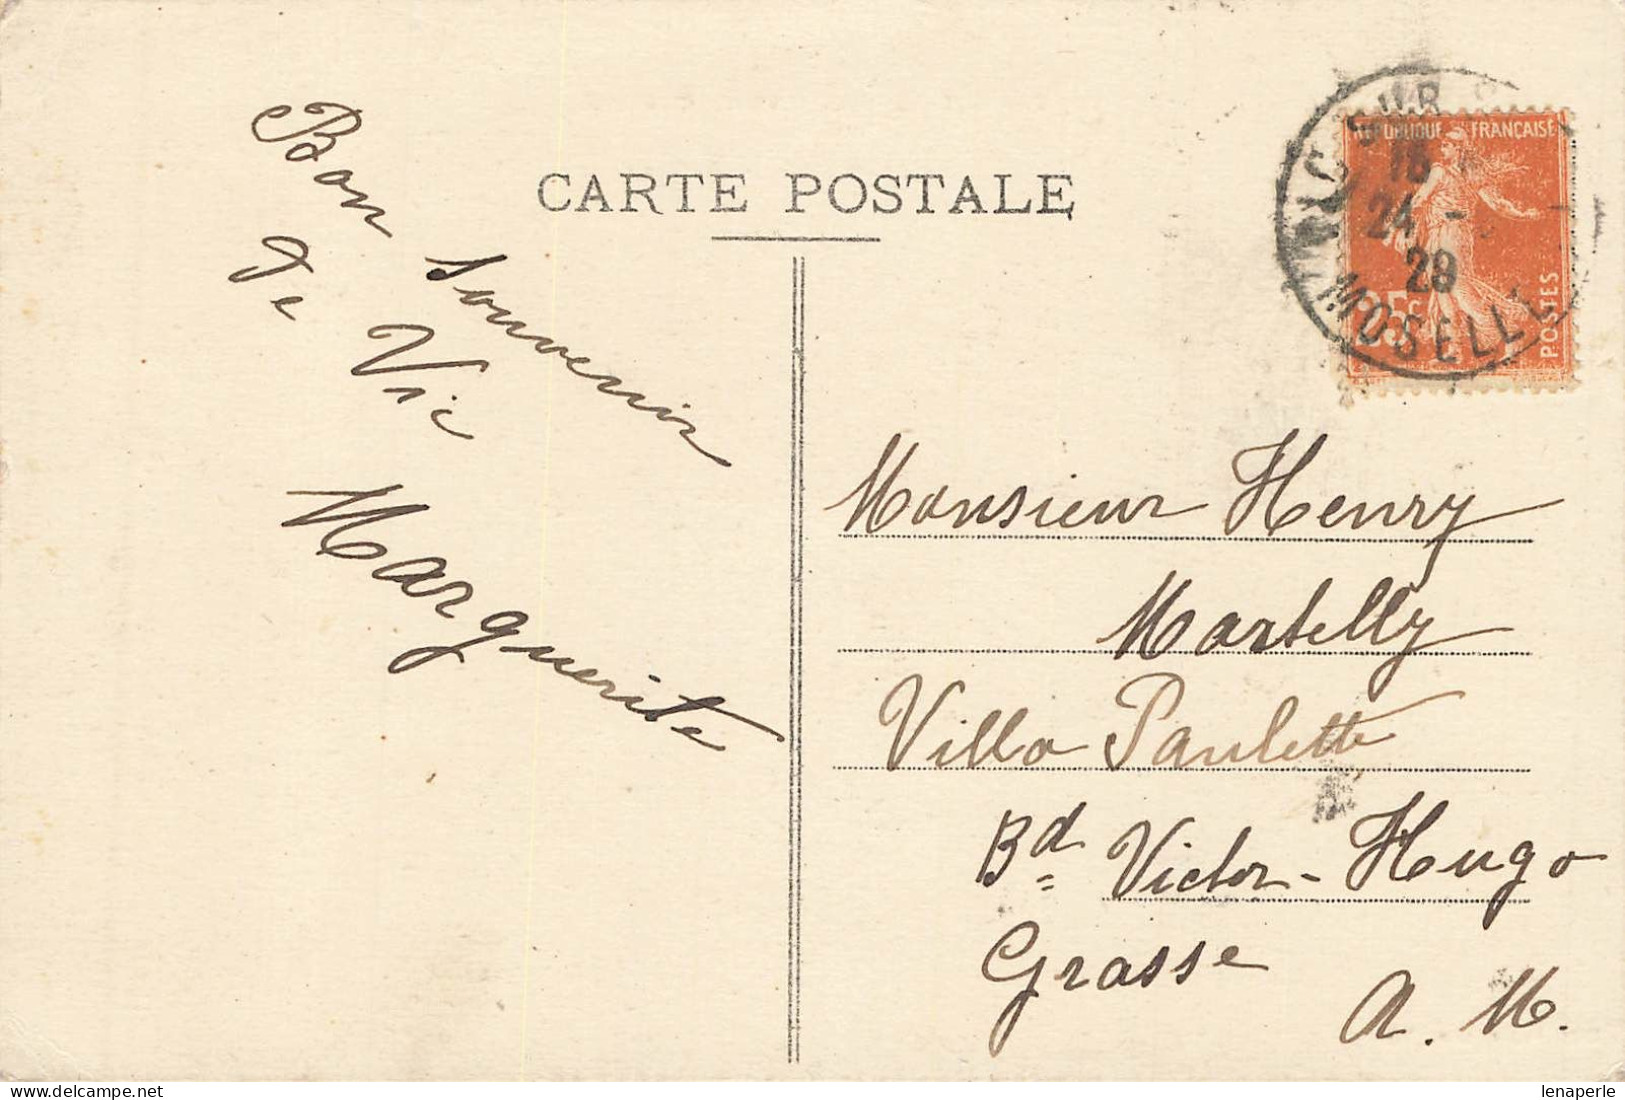 CARTE POSTALE
Bon souvenir
de Vic
Marguerite
VIC SUR
18
24 -
29
MOSELLE
REPUBLIQUE FRANÇAISE
POSTES
Monsieur Henry
Martelly
Villa Paulette
Bd Victor-Hugo
Grasse
A. M.
Delcampe.net
lenaperle